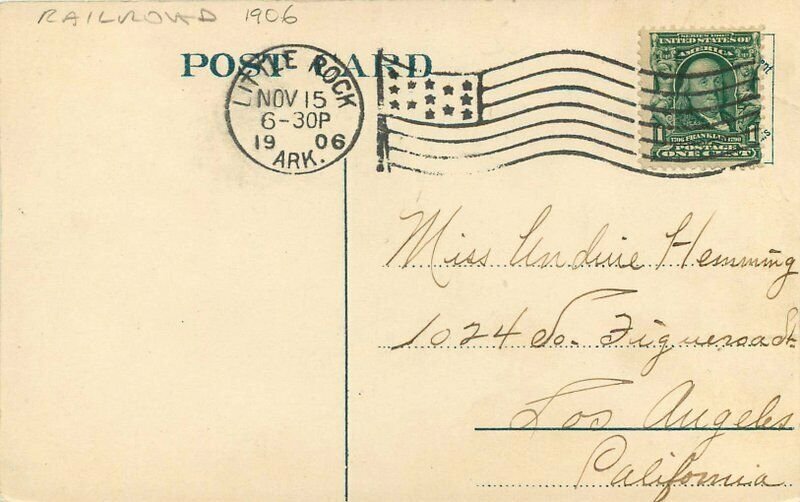 RAILROAD 1906
POST CARD
LITTLE ROCK
NOV 15
6-30P
19 06
ARK.
SERIES 1902
UNITED STATES OF
AMERICA
1706 FRANKLIN 1790
POSTAGE
1 ONE CENT 1
Miss Undine Hemming
1024 So. Figueroa St.
Los Angeles
California